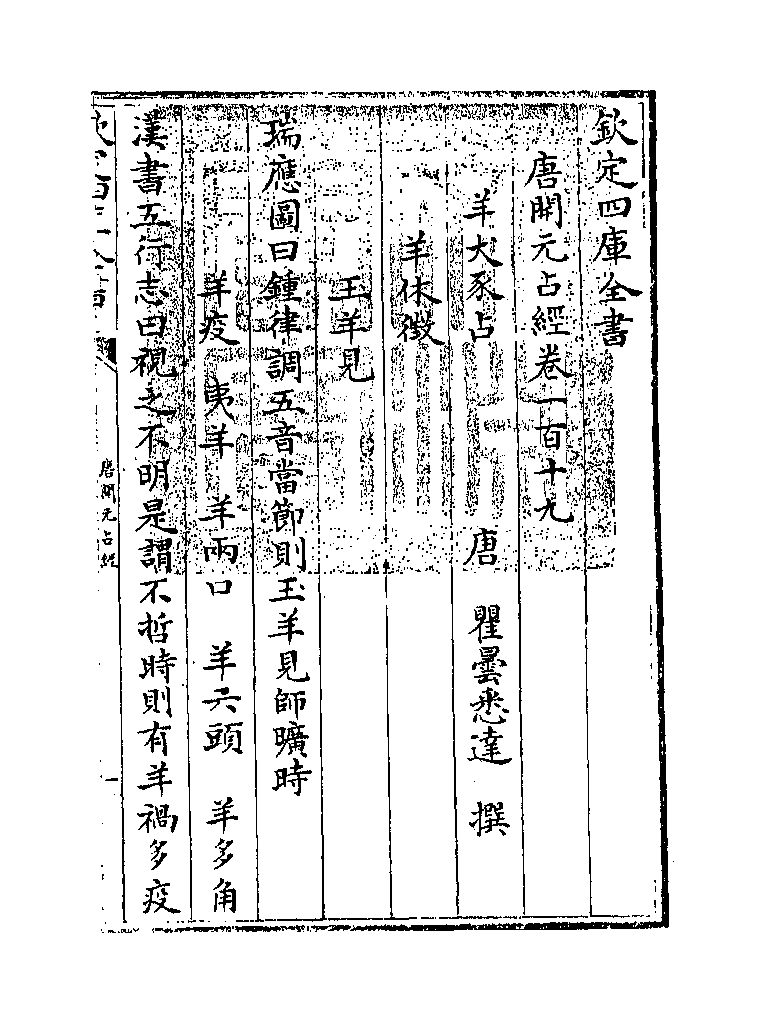 欽定四庫全書
唐開元占經卷一百十九
羊犬豕占　唐　瞿曇悉達　撰
羊休徵
玉羊見
瑞應圖曰鍾律調五音當節則玉羊見師曠時
羊疫　夷羊　羊兩口　羊六頭　羊多角
漢書五行志曰視之不明是謂不哲時則有羊禍多疫
唐開元占經
一